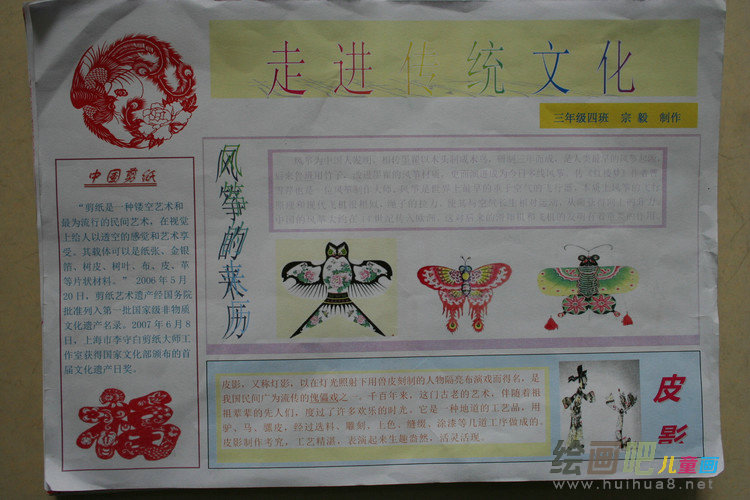 走进传统文化
三年级四班 宗毅 制作
中国剪纸
“剪纸是一种镂空艺术和
最为流行的民间艺术，在视觉
上给人以透空的感觉和艺术享
受。其载体可以是纸张、金银
箔、树皮、树叶、布、皮、革
等片状材料。” 2006 年 5 月
20 日，剪纸艺术遗产经国务院
批准列入第一批国家级非物质
文化遗产名录。2007 年 6 月 8
日，上海市李守白剪纸大师工
作室获得国家文化部颁布的首
届文化遗产日奖。
风筝的来历
风筝为中国人发明，相传墨翟以木头制成木鸟，研制三年而成，是人类最早的风筝起源。
后来鲁班用竹子，改进墨翟的风筝材质，
中国的风筝大约在 14 世纪传入欧洲，这对后来的滑翔机和飞机的发明有着重要的作用。
皮影，又称灯影，以在灯光照射下用兽皮刻制的人物隔亮布演戏而得名，是
我国民间广为流传的傀儡戏之一，千百年来，这门古老的艺术，伴随着祖
祖辈辈的先人们，度过了许多欢乐的时光。它是一种地道的工艺品，用
驴、马、骡皮，经过选料、雕刻、上色、缝缀、涂漆等几道工序做成的。
皮影制作考究，工艺精湛，表演起来生趣盎然，活灵活现。
皮影
绘画吧儿童画
www.huihua8.net